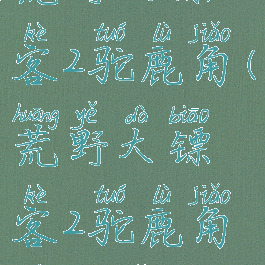 kè tuó lù jiǎo
客2驼鹿角(
huāng yě dà biāo
荒野大镖
kè tuó lù jiǎo
客2驼鹿角